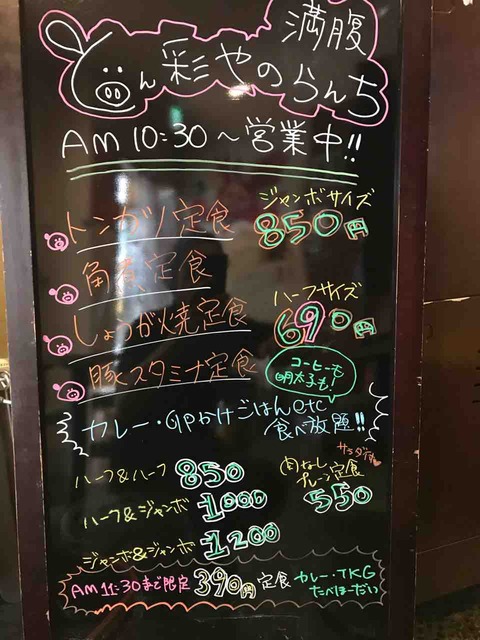 満腹
とん彩やのらんち
AM 10:30〜営業中!!
トンカツ定食
ジャンボサイズ
850円
角煮定食
しょうが焼定食
ハーフサイズ
690円
豚スタミナ定食
コーヒーも
明太子も!
カレー・卵かけごはんetc
食べ放題!!
サラダ付
ハーフ&ハーフ 850
肉なし
プレーン定食
550
ハーフ&ジャンボ 1000
ジャンボ&ジャンボ 1200
AM 11:30まで限定 390円 定食 カレー・TKG
たべほーだい